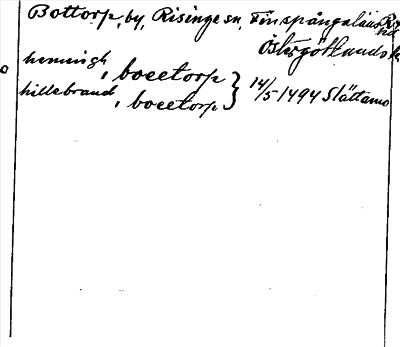 Bottorp, by, Risinge sn, Finspångaläns
Östergötlands
henningh, bocetorp
hillebrand, bocetorp } 14/5 1494 Slättamo